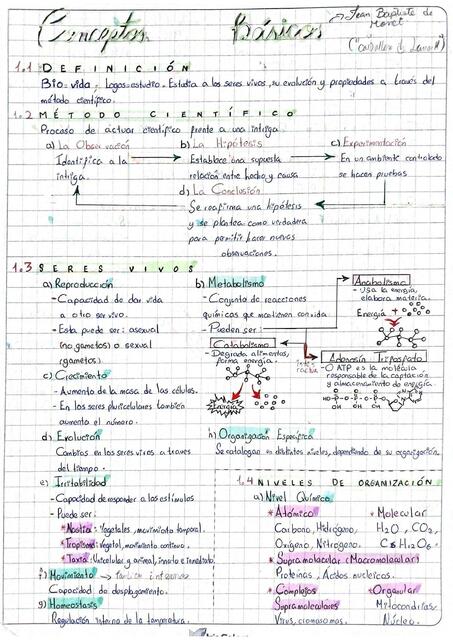 Conceptos Básicos
→ Jean Baptiste de Monet
("Caballero de Lamarck")
1.1 DEFINICIÓN
Bio=vida, Logos=estudio. Estudia a los seres vivos, su evolución y propiedades a través del
método científico.
1.2 MÉTODO CIENTÍFICO
Proceso de actuar científico frente a una intriga.
a) La Observación
Identifica a la
intriga.
b) La Hipótesis
Establece una supuesta
relación entre hecho y causa
c) Experimentación
En un ambiente controlado
se hacen pruebas
d) La Conclusión
Se reafirma una hipótesis
y se plantea como verdadera
para permitir hacer nuevas
observaciones.
1.3 SERES VIVOS
a) Reproducción
- Capacidad de dar vida
a otro ser vivo.
- Esta puede ser: asexual
(no gametos) o sexual
(gametos)
b) Metabolismo
- Conjunto de reacciones
químicas que mantienen con vida
- Pueden ser:
Catabolismo
- Degrada alimentos,
forma energía.
Energía
Anabolismo
- Usa la energía,
elabora materia.
Energía +
Adenosín Trifosfato
- O ATP es la molécula
responsable de la captación
y almacenamiento de energía.
c) Crecimiento
- Aumento de la masa de las células.
- En los seres pluricelulares también
aumenta el número.
d) Evolución
Cambios en los seres vivos a traves
del tiempo.
e) Irritabilidad
- Capacidad de responder a los estímulos
- Puede ser:
*Nastia: Vegetales, movimiento temporal.
*Tropismo: vegetal, movimiento continuo.
*Taxia: Unicelular y animal, innato e inmediato.
f) Movimiento → También interno
Capacidad de desplazamiento.
g) Homeostasis
Regulación interna de la temperatura.
h) Organización Específica
Se catalogan en distintos niveles, dependiendo de su organización.
1.4 NIVELES DE ORGANIZACIÓN
a) Nivel Químico
*Atómico
Carbono, Hidrógeno,
Oxígeno, Nitrógeno.
*Molecular
H₂O, CO₂,
C₆H₁₂O₆.
*Supramolecular (Macromolecular)
Proteínas, Ácidos nucleicos.
*Complejos
Supramoleculares
Virus, cromosomas.
*Organular
Mitocondrias
Núcleo.